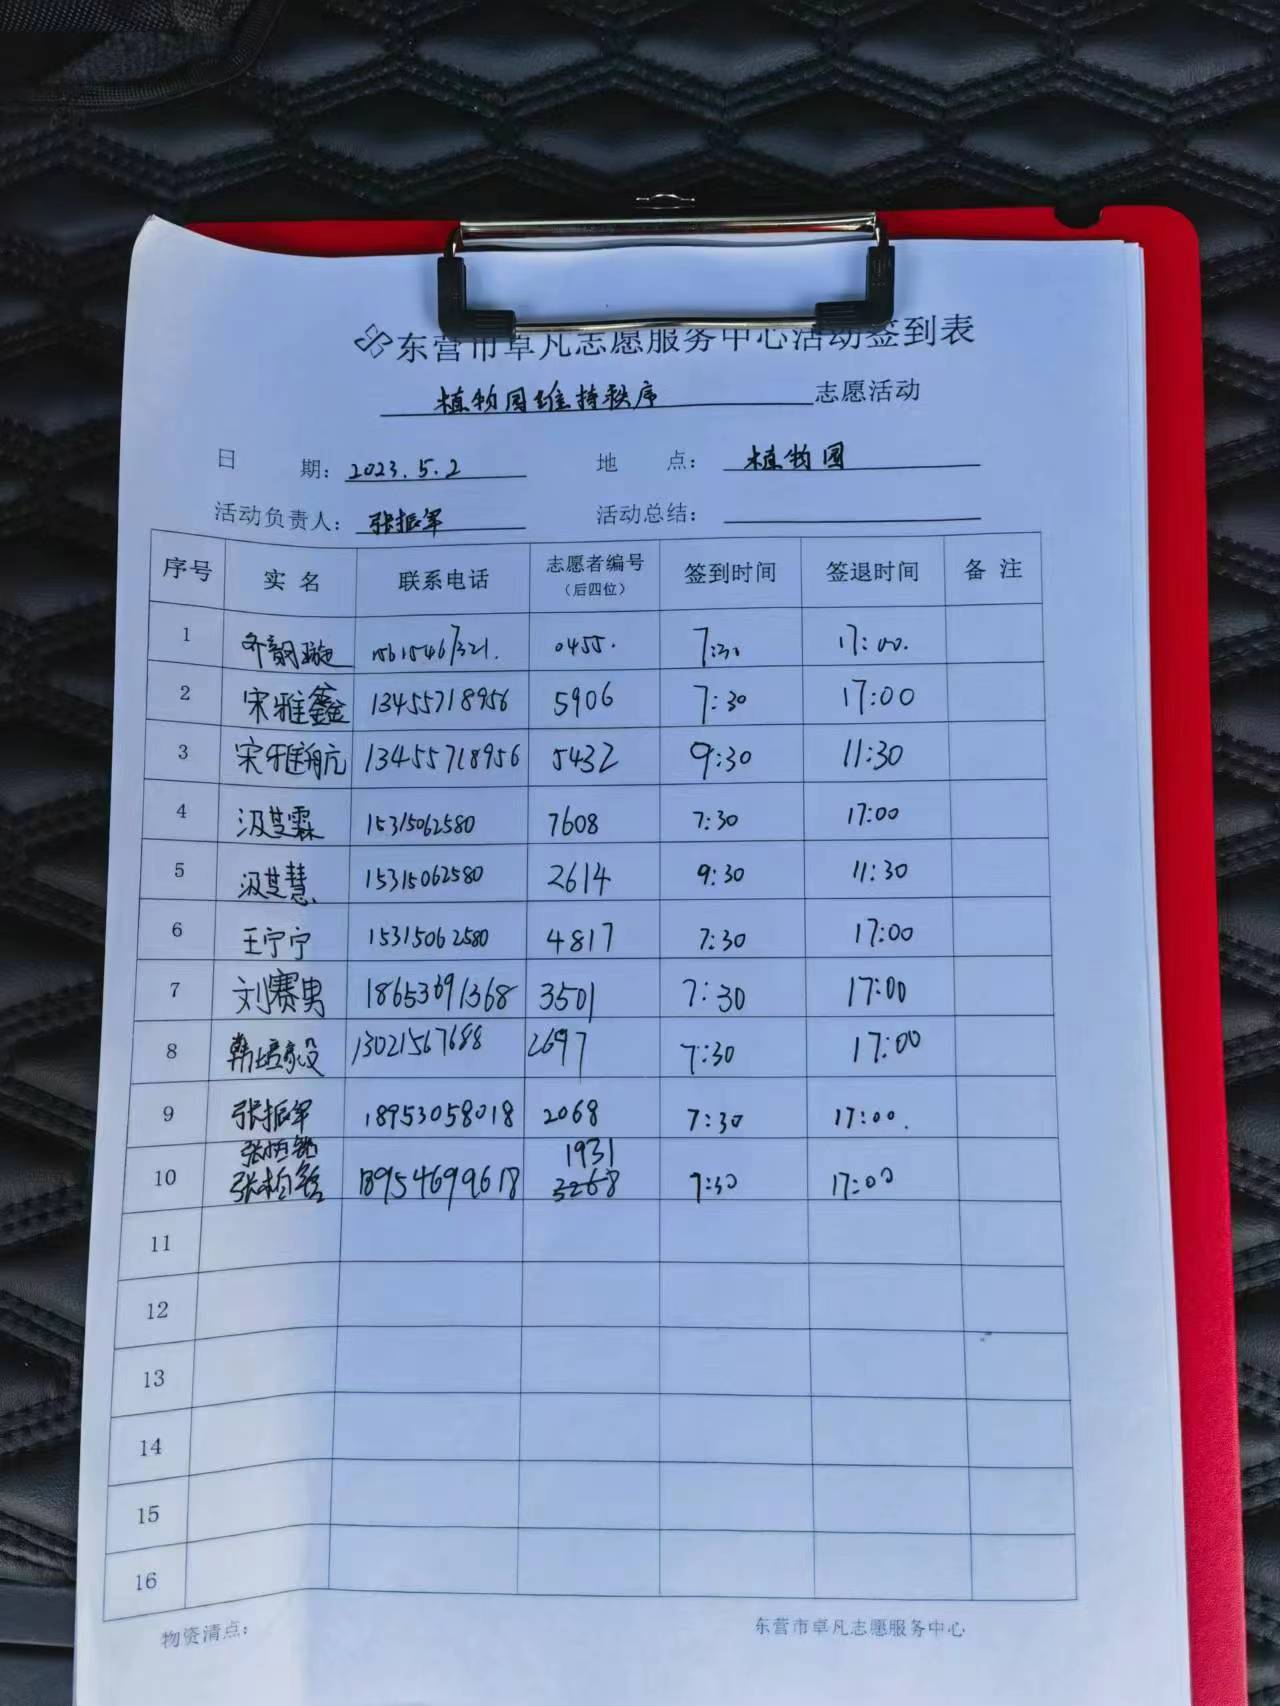 东营市卓凡志愿服务中心活动签到表
植物园维持秩序 志愿活动
日 期: 2023.5.2 地 点: 植物园
活动负责人: 张振军 活动总结:
序号 实 名 联系电话 志愿者编号(后四位) 签到时间 签退时间 备 注
1 齐韵璇 15615467321. 0455. 7:30 17:00.
2 宋雅鑫 13455718956 5906 7:30 17:00
3 宋雅航 13455718956 5432 9:30 11:30
4 汲芝霖 15315062580 7608 7:30 17:00
5 汲芝慧 15315062580 2614 9:30 11:30
6 王宁宁 15315062580 4817 7:30 17:00
7 刘赛男 18653691368 3501 7:30 17:00
8 韩培毅 13021567688 2697 7:30 17:00
9 张振军 18953058018 2068 7:30 17:00.
张恒铭 1931
10 张柏铭 18954699618 3268 7:30 17:00
11
12
13
14
15
16
物资清点: 东营市卓凡志愿服务中心